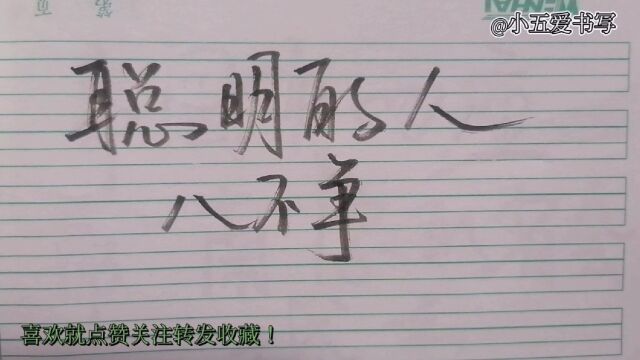 第 页
@小五爱书写
聪明的人
八不争
喜欢就点赞关注转发收藏！